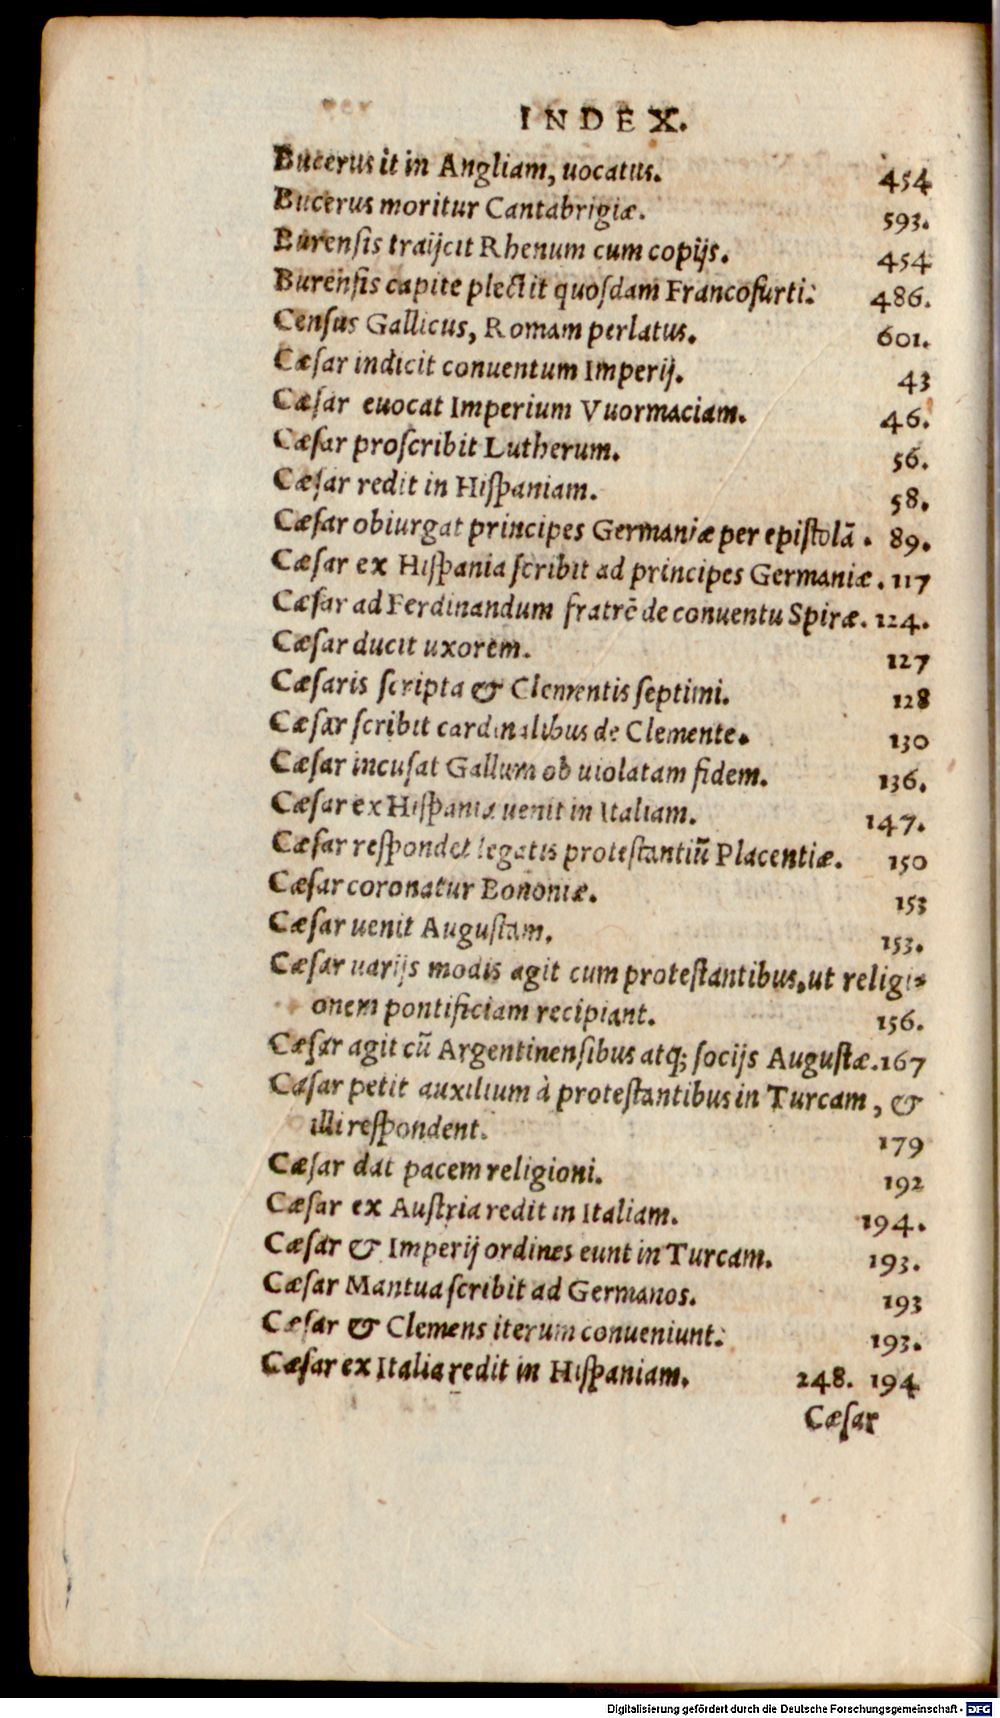 INDEX.
Bucerus it in Angliam, uocatus. 454
Bucerus moritur Cantabrigiæ. 593.
Burensis traijcit Rhenum cum copijs. 454
Burensis capite plectit quosdam Francofurti. 486.
Census Gallicus, Romam perlatus. 601.
Cæsar indicit conuentum Imperij. 43
Cæsar euocat Imperium Vuormaciam. 46.
Cæsar proscribit Lutherum. 56.
Cæsar redit in Hispaniam. 58.
Cæsar obiurgat principes Germaniæ per epistolā. 89.
Cæsar ex Hispania scribit ad principes Germaniæ. 117
Cæsar ad Ferdinandum fratrē de conuentu Spiræ. 124.
Cæsar ducit uxorem. 127
Cæsaris scripta & Clementis septimi. 128
Cæsar scribit cardinalibus de Clemente. 130
Cæsar incusat Gallum ob uiolatam fidem. 136.
Cæsar ex Hispania uenit in Italiam. 147.
Cæsar respondet legatis protestantiū Placentiæ. 150
Cæsar coronatur Bononiæ. 153
Cæsar uenit Augustam. 153.
Cæsar uarijs modis agit cum protestantibus, ut religi-
onem pontificiam recipiant. 156.
Cæsar agit cū Argentinensibus atq; socijs Augustæ. 167
Cæsar petit auxilium à protestantibus in Turcam, &
illi respondent. 179
Cæsar dat pacem religioni. 192
Cæsar ex Austria redit in Italiam. 194.
Cæsar & Imperij ordines eunt in Turcam. 193.
Cæsar Mantua scribit ad Germanos. 193
Cæsar & Clemens iterum conueniunt. 193.
Cæsar ex Italia redit in Hispaniam. 248. 194
Cæsar
Digitalisierung gefördert durch die Deutsche Forschungsgemeinschaft - DFG